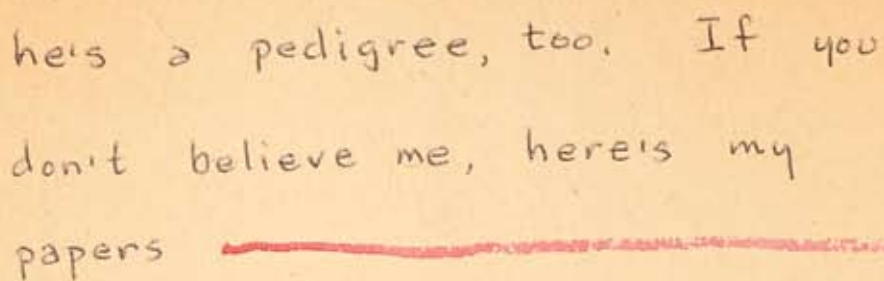 he's a pedigree, too. If you
don't believe me, here's my
papers